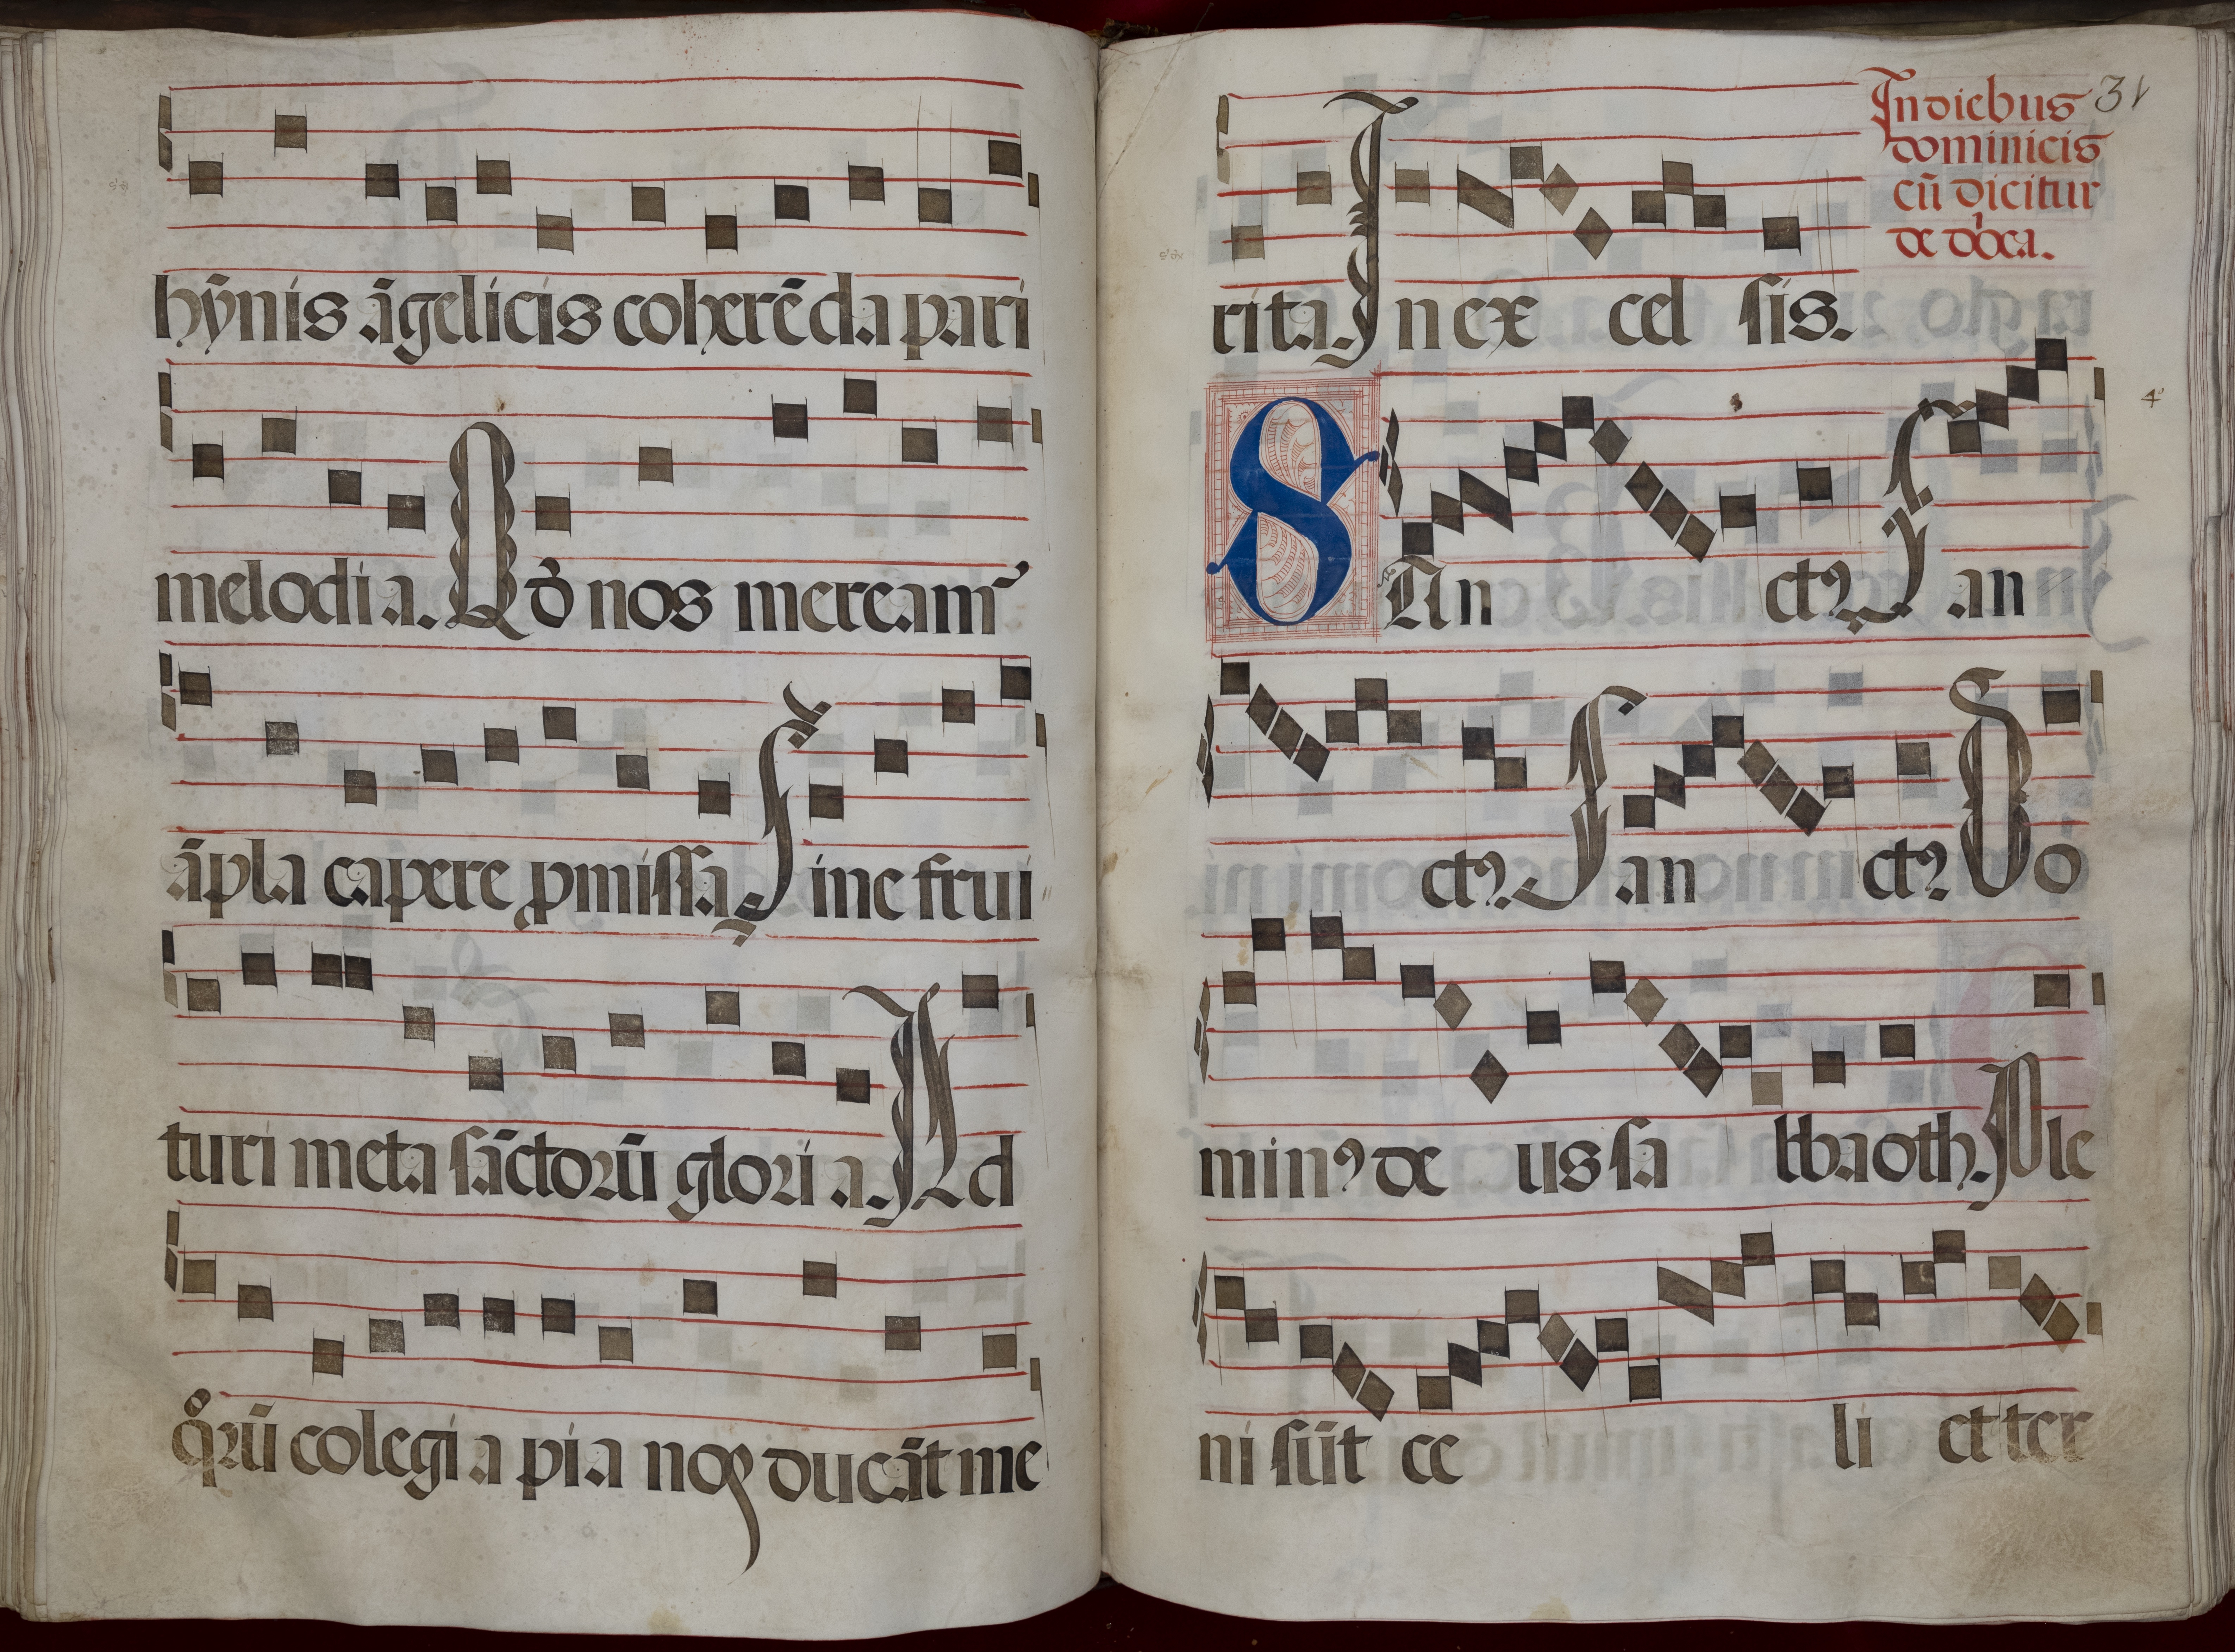 hȳnis āgelicis coherēda pari
melodia. Qđ nos mereamr᷒
āpla capere ꝓmissa Sine frui
turi meta sāctorū glori a. Ad
qᵒrū colegi a pi a noꝫ ducāt me
31
In diebus
dominicis
cū dicitur
de
rita. In ex cel sis.
SAn ctꝰ San
ctꝰ. San ctꝰ Do
minꝰ de us sa bbaoth. Ple
ni sūt ce li et ter